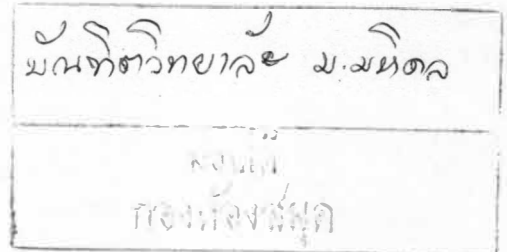 บัณฑิตวิทยาลัย ม.มหิดล
ของห้องสมุด